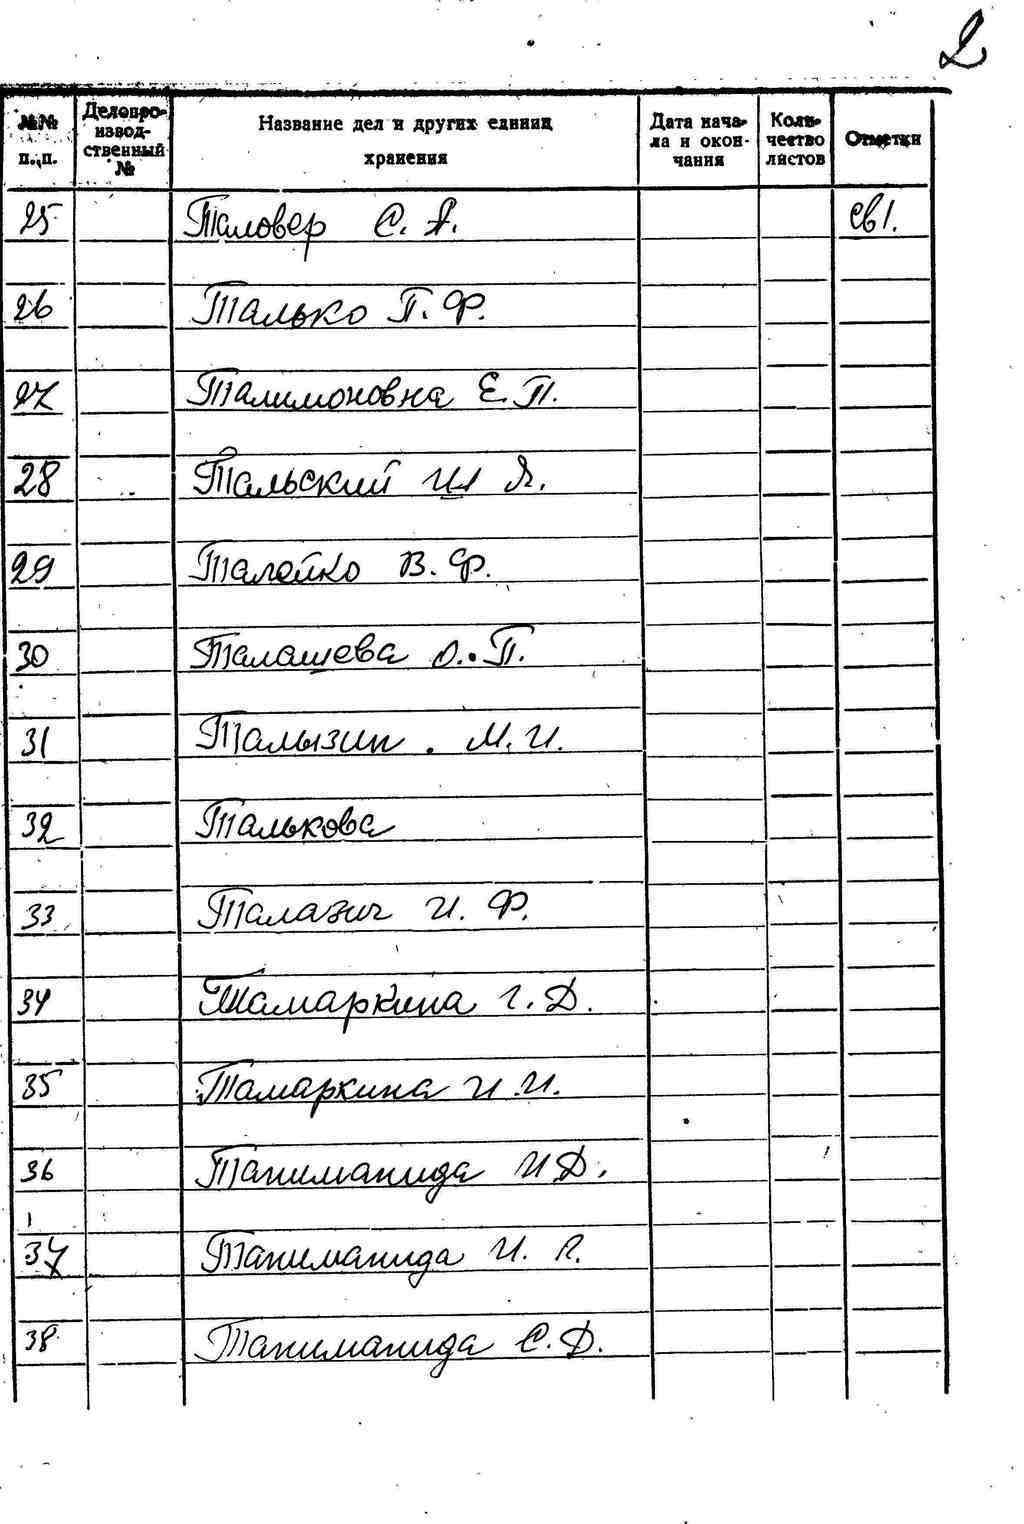 2
№№ п.п. Делопроизводственный № Название дел и других единиц хранения Дата начала и окончания Количество листов Отметки
25 Таловер С. А. св 1.
26 Талько Г. Ф.
27 Талимоновна Е. П.
28 Тальский И. Я.
29 Талейко В. Ф.
30 Талашева О. П.
31 Талызин М. И.
32 Талькова
33 Талазич И. Ф.
34 Тамаркина Г. Д.
35 Тамаркина И. И.
36 Таниманида И Д.
37 Таниманида И.
38 Таниманида С. Д.